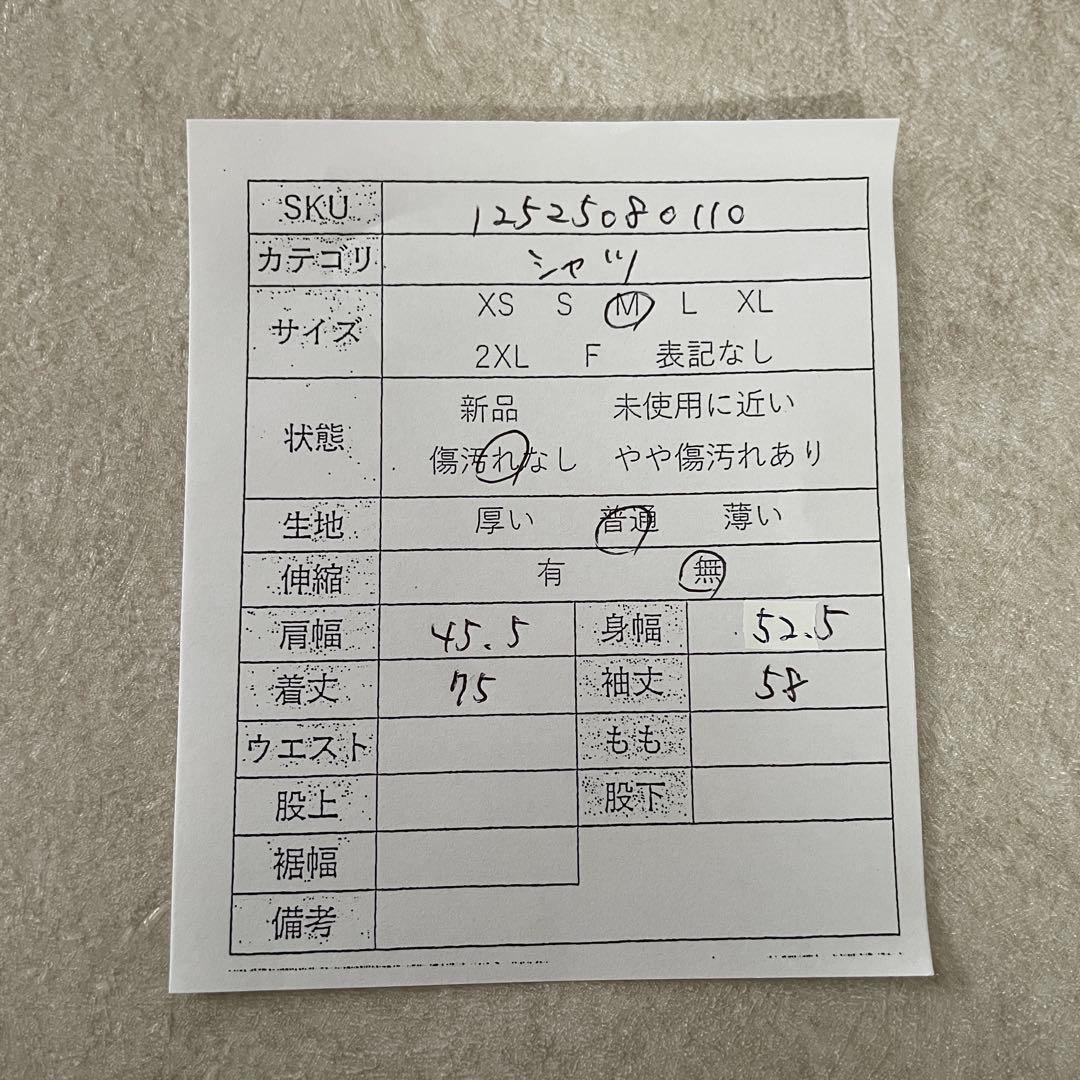 SKU 12525080110
カテゴリ シャツ
サイズ XS S M L XL
2XL F 表記なし
状態 新品 未使用に近い
傷汚れなし やや傷汚れあり
生地 厚い 普通 薄い
伸縮 有 無
肩幅 45.5 身幅 52.5
着丈 75 袖丈 58
ウエスト もも
股上 股下
裾幅
備考